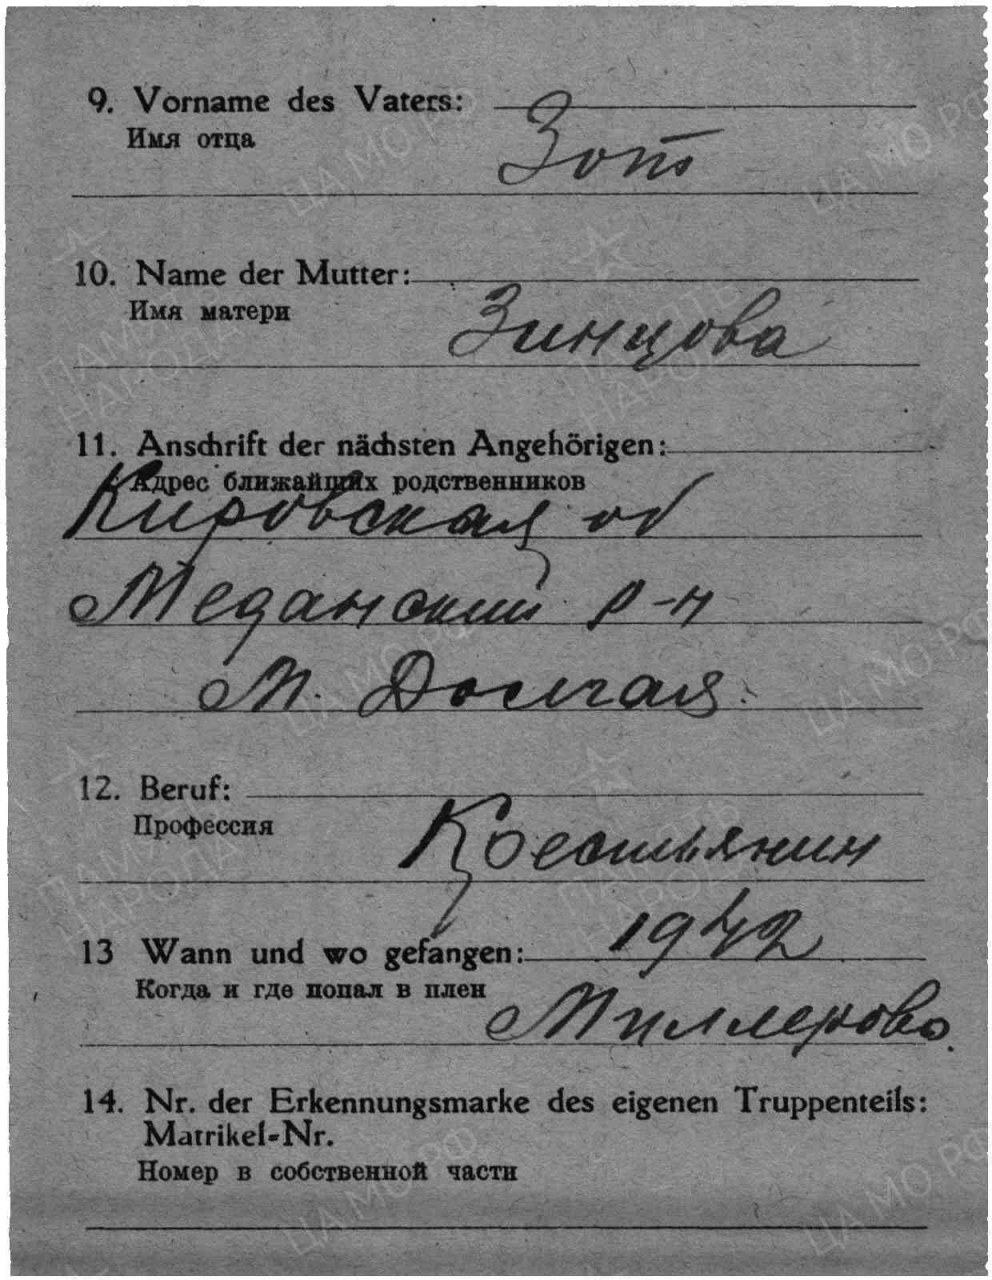 9. Vorname des Vaters:
Имя отца
Зот
10. Name der Mutter:
Имя матери
Зинцова
11. Anschrift der nächsten Angehörigen:
Адрес ближайших родственников
Кировская об
Меданский р-н
М. Долгая
12. Beruf:
Профессия
Крестьянин
13 Wann und wo gefangen:
1942
Когда и где попал в плен
Миллерово.
14. Nr. der Erkennungsmarke des eigenen Truppenteils:
Matrikel-Nr.
Номер в собственной части
ЦА МО РФ
ПАМЯТЬ НАРОДА